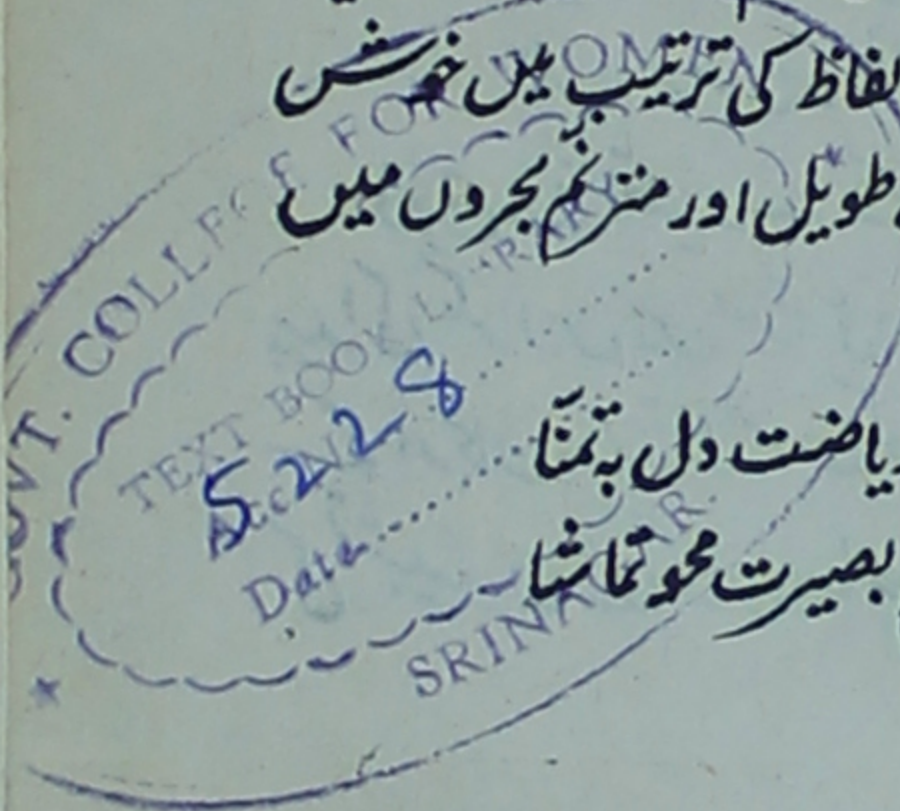 لفاظ کی ترتیب میں خوش
طویل اور مترنّم بحروں میں
ریاضت دل بہ تمنّا
بصیرت محو تماشا
GOVT. COLLEGE FOR WOMEN
TEXT BOOK LIBRARY
Acc. No. 5228
Date
SRINAGAR.